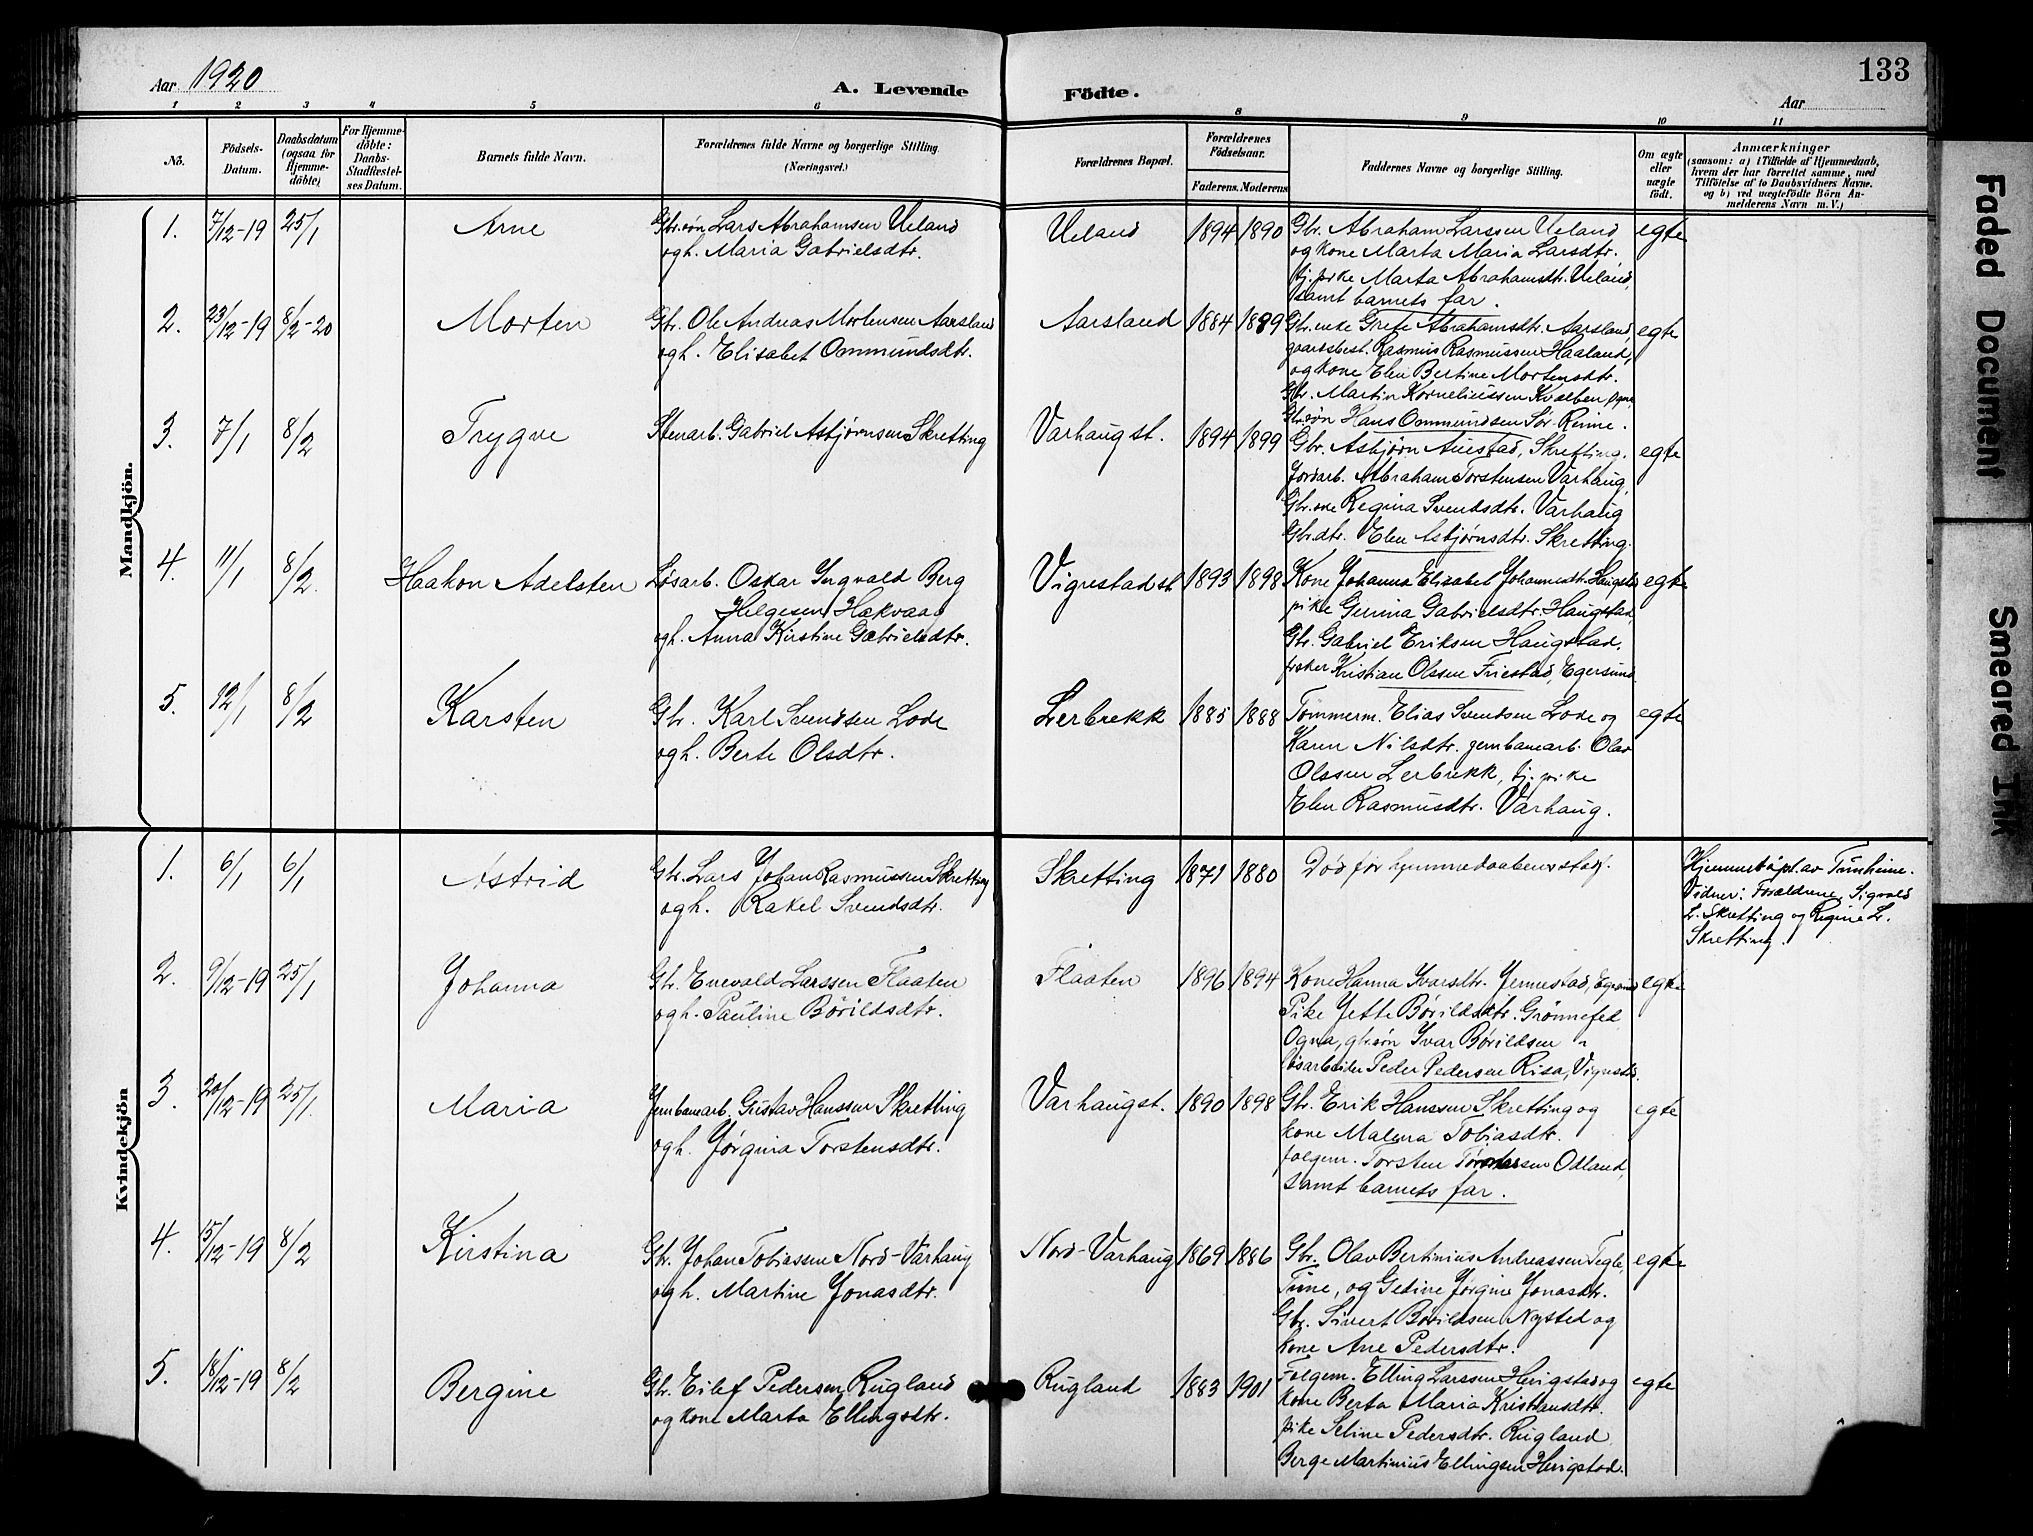 Aar 1920
A. Levende
Födte.
133
Aar
1 2 3 4 5 6 8 9 10 11
No.
Födsels-
Datum.
Daabsdatum
(ogsaa for
Hjemme-
döbte)
For Hjemme-
döbte:
Daabs-
Stadfæstel-
ses Datum.
Barnets fulde Navn.
Forældrenes fulde Navne og borgerlige Stilling
(Næringsvei.)
Forældrenes Bopæl.
Forældrenes
Födselsaar.
Faderens. Moderens
Faddernes Navne og borgerlige Stilling.
Om ægte
eller
uægte
födt.
Anmærkninger
(saasom: a) i Tilfælde af Hjemmedaab,
hvem der har forrettet samme, med
Tilföielse af to Daabsvidners Navne.
og b) ved uægtefödte Börn An-
melderens Navn m. V.)
Mandkjön.
1. 7/12-19 25/1 Arne
Gbr.søn Lars Abrahamsen Ueland
ogh. Maria Gabrielsdtr.
Ueland 1894 1890
Gbr. Abraham Larssen Ueland
og kone Marta Maria Larsdtr.
tj. pike Marta Abrahamsdtr. Ueland,
samt barnets far.
egte
2. 23/12-19 8/2-20 Morten
Gbr. Ole Andreas Mortensen Aarsland
ogh. Elisabet Ommundsdtr.
Aarsland 1884 1889
Gbr.enke Grete Abrahamsdtr. Aarsland,
gaardsbest. Rasmus Rasmussen Haaland,
og kone Elen Bertine Mortensdtr.
Gbr. Martin Korneliussen Kvalben
Gbr.søn Hans Ommundsen Sør. Reime.
egte
3. 7/1 8/2 Trygve
Stenarb. Gabriel Asbjørnsen Skretting
Varhaugst. 1894 1899
Gbr. Asbjørn Auestad, Skretting.
Jordarb. Abraham Torstensen Varhaug,
Gbr.kne Regina Svendsdtr. Varhaug
Gbr.dtr. Elen Asbjørnsdtr. Skretting.
egte
4. 11/1 8/2 Haakon Adelsten
Løsarb. Oskar Ingvald Berg
Helgesen Hækvaag
ogh. Anna Kirstine Gabrielsdtr.
Vigrestadst. 1893 1898
Kone Johanna Elisabet Johannesdtr. Haugstad
pike Gurina Gabrielsdtr. Haugstad,
Gbr. Gabriel Eriksen Haugstad,
fisker Kristian Olssen Friestad, Egersund.
egte
5. 12/1 8/2 Karsten
Gbr. Karl Svendsen Lode
ogh. Berte Olsdtr.
Lerbrekk 1885 1888
Tømmerm. Elias Svendsen Lode og
Karen Nilsdtr. jernbanearb. Olav
Olssen Lerbrekk, tj. pike
Elen Rasmusdtr. Varhaug.
egte
Kvindekjön
1. 6/1 6/1 Astrid
Gbr. Lars Johan Rasmussen Skretting
ogh. Rakel Svendsdtr.
Skretting 1871 1880
Død før hjemmedaabens stadf.
Hjemmedøpt av Tunheim.
Vidner: Forældrene, Sigvald
L. Skretting og Regine L.
Skretting.
2. 9/12-19 25/1 Johanna
Gbr. Enevald Larssen Flaaten
ogh. Pauline Børildsdtr.
Flaaten 1896 1894
Kone Hanna Ivarsdtr. Jernestad, Egersund
Pike Jette Børildsdtr. Grønnefed
Ogna, gbr.søn Ivar Børildsen
løsarbeider Peder Pedersen Risa, Vigrestd.
egte
3. 20/12-19 25/1. Maria
Jernbanearb. Gustav Hanssen Skretting
ogh. Jørgina Torstensdtr.
Varhaugst. 1890 1898
Gbr. Erik Hanssen Skretting og
kone Malena Tobiasdtr.
folgem. Torsten Torstensen Odland,
samt barnets far.
egte
4. 15/12-19 8/2 Kirstina
Gbr. Johan Tobiassen Nord-Varhaug
ogh. Martine Jonasdtr.
Nord-Varhaug 1869 1886
Gbr. Olav Bertinius Andreassen Tegle,
Time, og Gedine Jørgine Jonasdtr.
Gbr. Sivert Børildsen Nysted og
kone Ane Pedersdtr.
egte
5. 18/12-19 8/2 Bergine
Gbr. Eilef Pedersen Rugland
og kone Marta Ellingsdtr.
Rugland 1883 1901
Folgem. Elling Larssen Herigstad og
kone Berta Maria Kristiansdtr.
pike Seline Pedersdtr. Rugland
Berge Martinius Ellingsen Herigstad.
egte
Faded Document
Smeared Ink